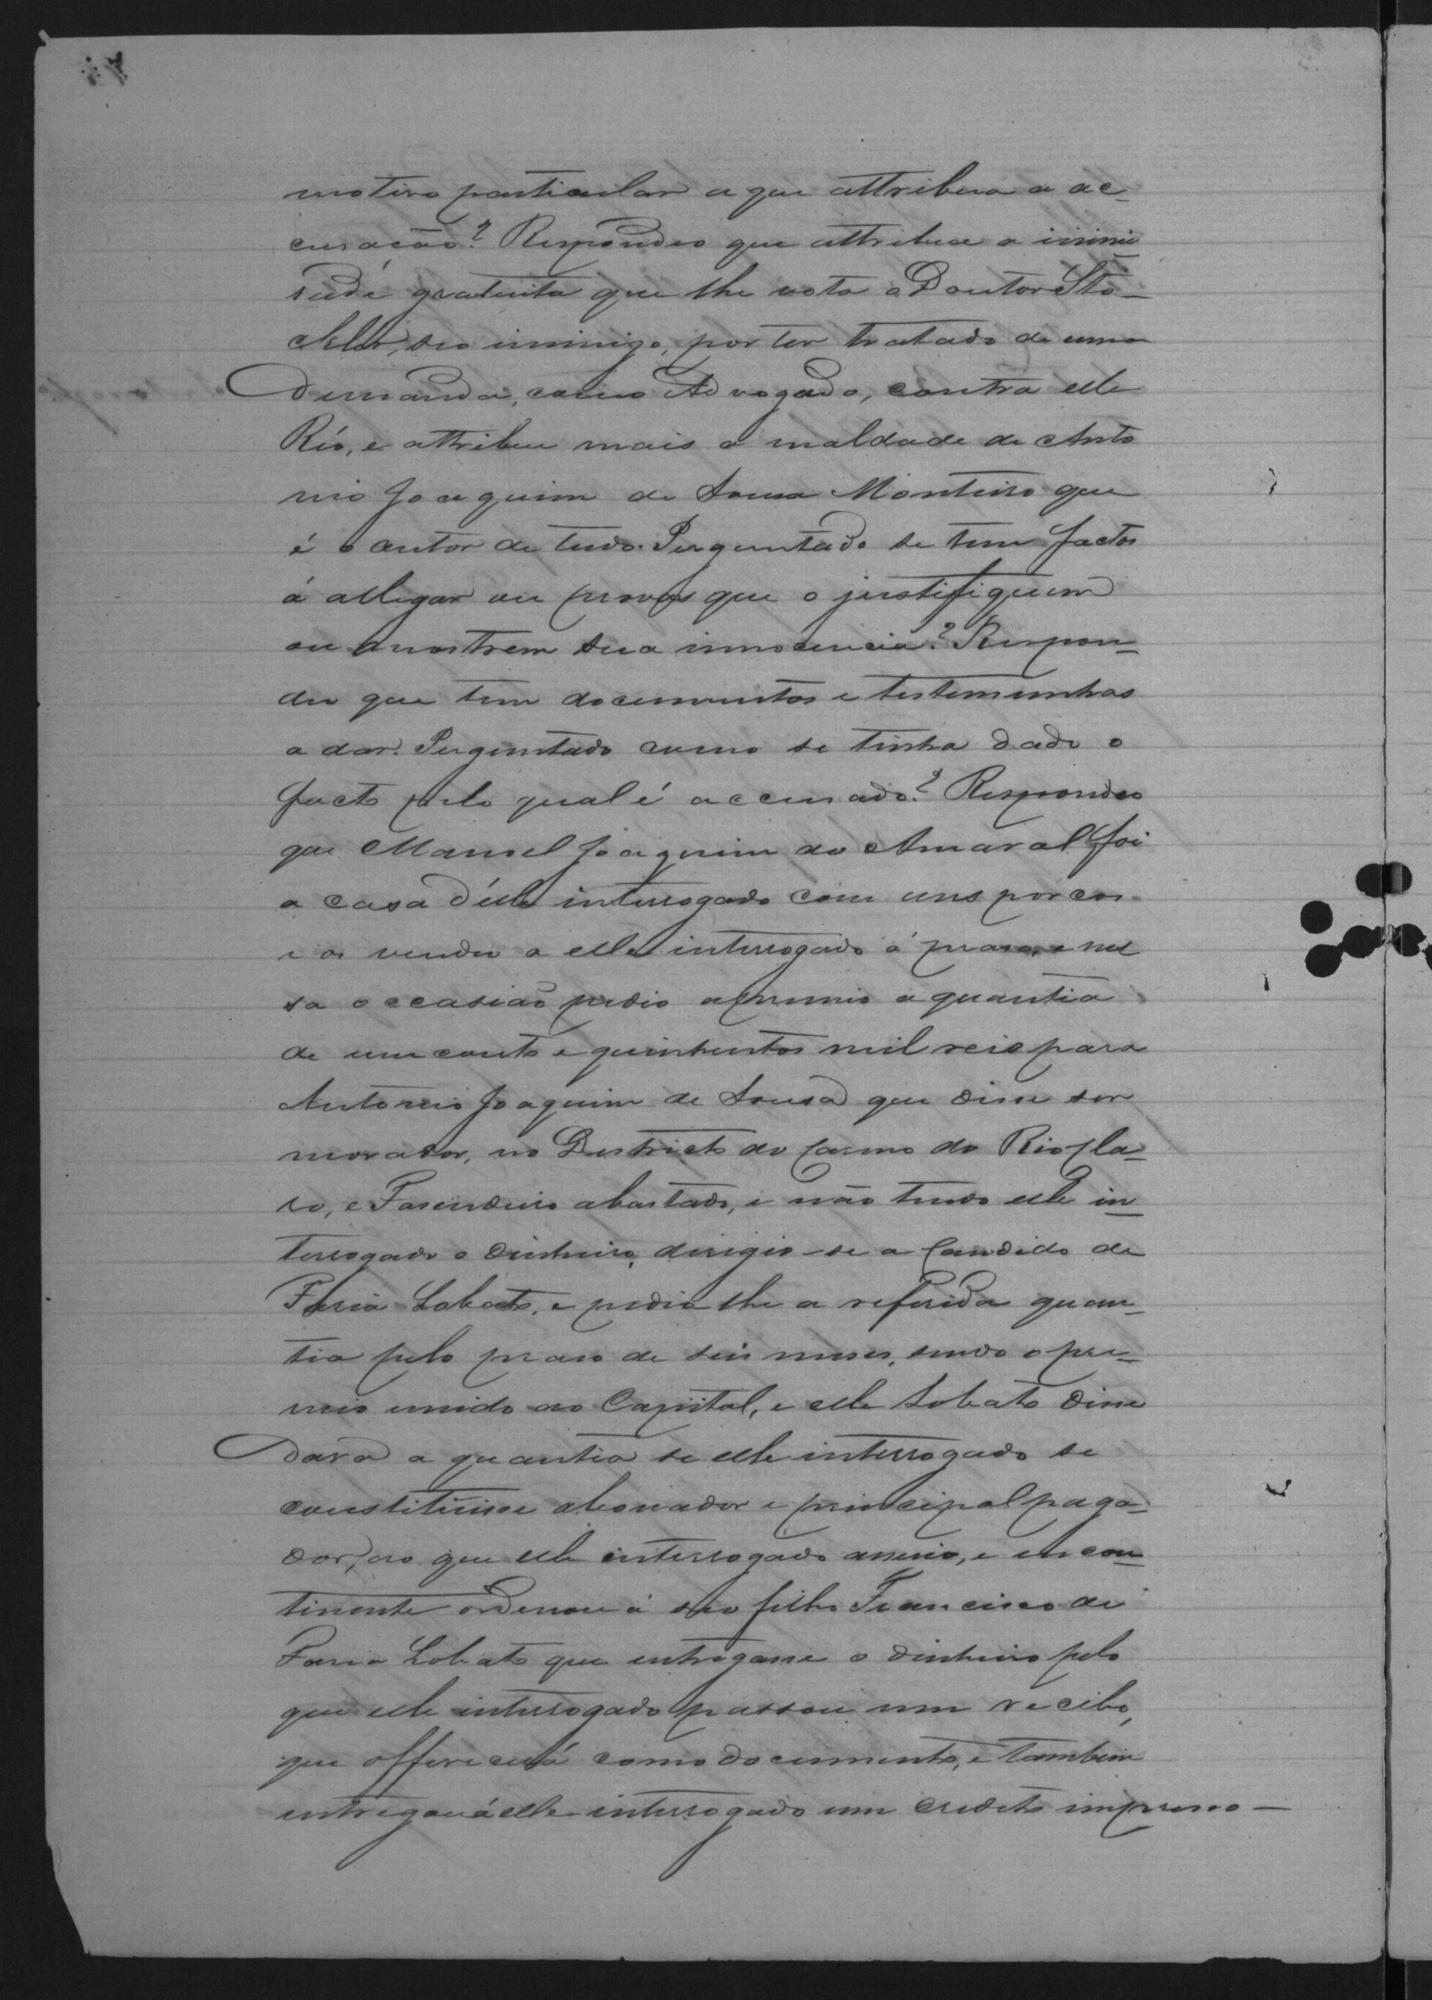 motivo particular a que attribua a ac-
cusação? Respondeo que attribue a inimi
sade gratuita que lhe vota o Doutor Sto-
ckler, seo inimigo, por ter tratado de uma
demanda, como Advogado, contra elle
Réo, e attribue mais a maldade de Anto
nio Joaquim de Sousa Monteiro que
é o autor de tudo. Perguntado se tem factos
á allegar ou provas que o justifiquem
ou mostrem sua innocencia? Respon-
deu que tem documentos e testemunhas
a dar. Perguntado como se tinha dado o
facto pelo qual é accusado? Respondeo
que Manoel Joaquim do Amaral foi
a casa d'elle interrogado com uns porcos
e os vendeu a elle interrogado á praso, e nes
sa occasião pedio a premio a quantia
de um conto e quinhentos mil reis para
Antonio Joaquim de Sousa que disse ser
morador, no Districto do Carmo do Rio Cla-
ro, e Fasendeiro abastado, e não tendo elle in-
terrogado o dinheiro, dirigio-se a Candido de
Faria Lobato, e pedio lhe a referida quan-
tia pelo praso de seis meses, sendo o pre-
mio unido ao Capital, e elle Lobato disse
dara a quantia se elle interrogado se
constituisse abonador e principal paga-
dor, ao que elle interrogado annuio, e incon-
tinente ordenou á seo filho Francisco de
Faria Lobato que entregasse o dinheiro pelo
que elle interrogado passou um recibo,
que offerecerá como documento, e tambem
entregou á elle interrogado um credito impresso—